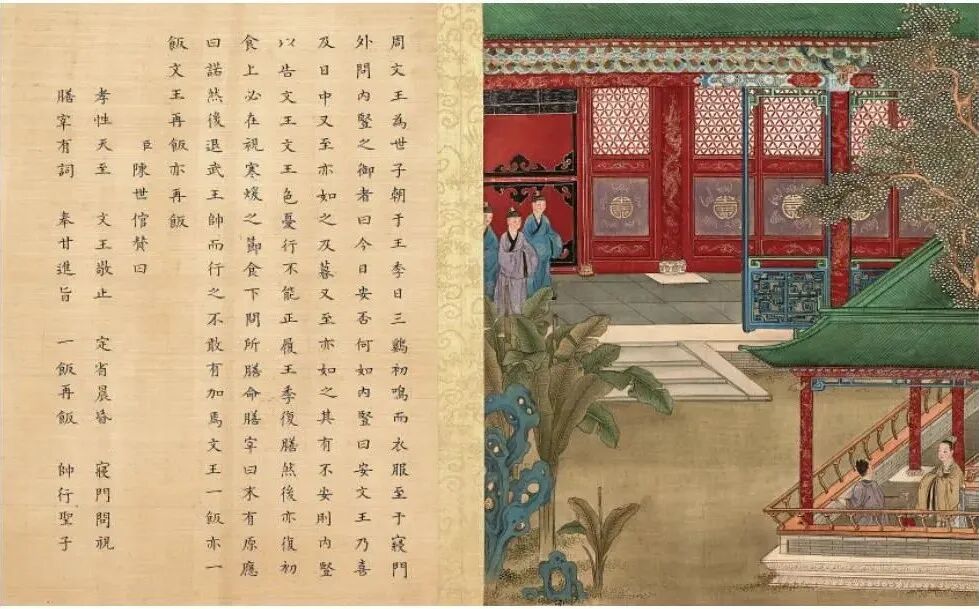 周文王為世子朝于王季日三鷄初鳴而衣服至于寢門
外問內豎之御者曰今日安否何如內豎曰安文王乃喜
及日中又至亦如之及暮又至亦如之其有不安則內豎
以告文王文王色憂行不能正履王季復膳然後亦復初
食上必在視寒煖之節食下問所膳命膳宰曰末有原應
曰諾然後退武王帥而行之不敢有加焉文王一飯亦一
飯文王再飯亦再飯
臣陳世倌贊曰
孝性天至 文王敬止 定省晨昏 寢門問視
膳宰有詞 奉甘進旨 一飯再飯 帥行聖子